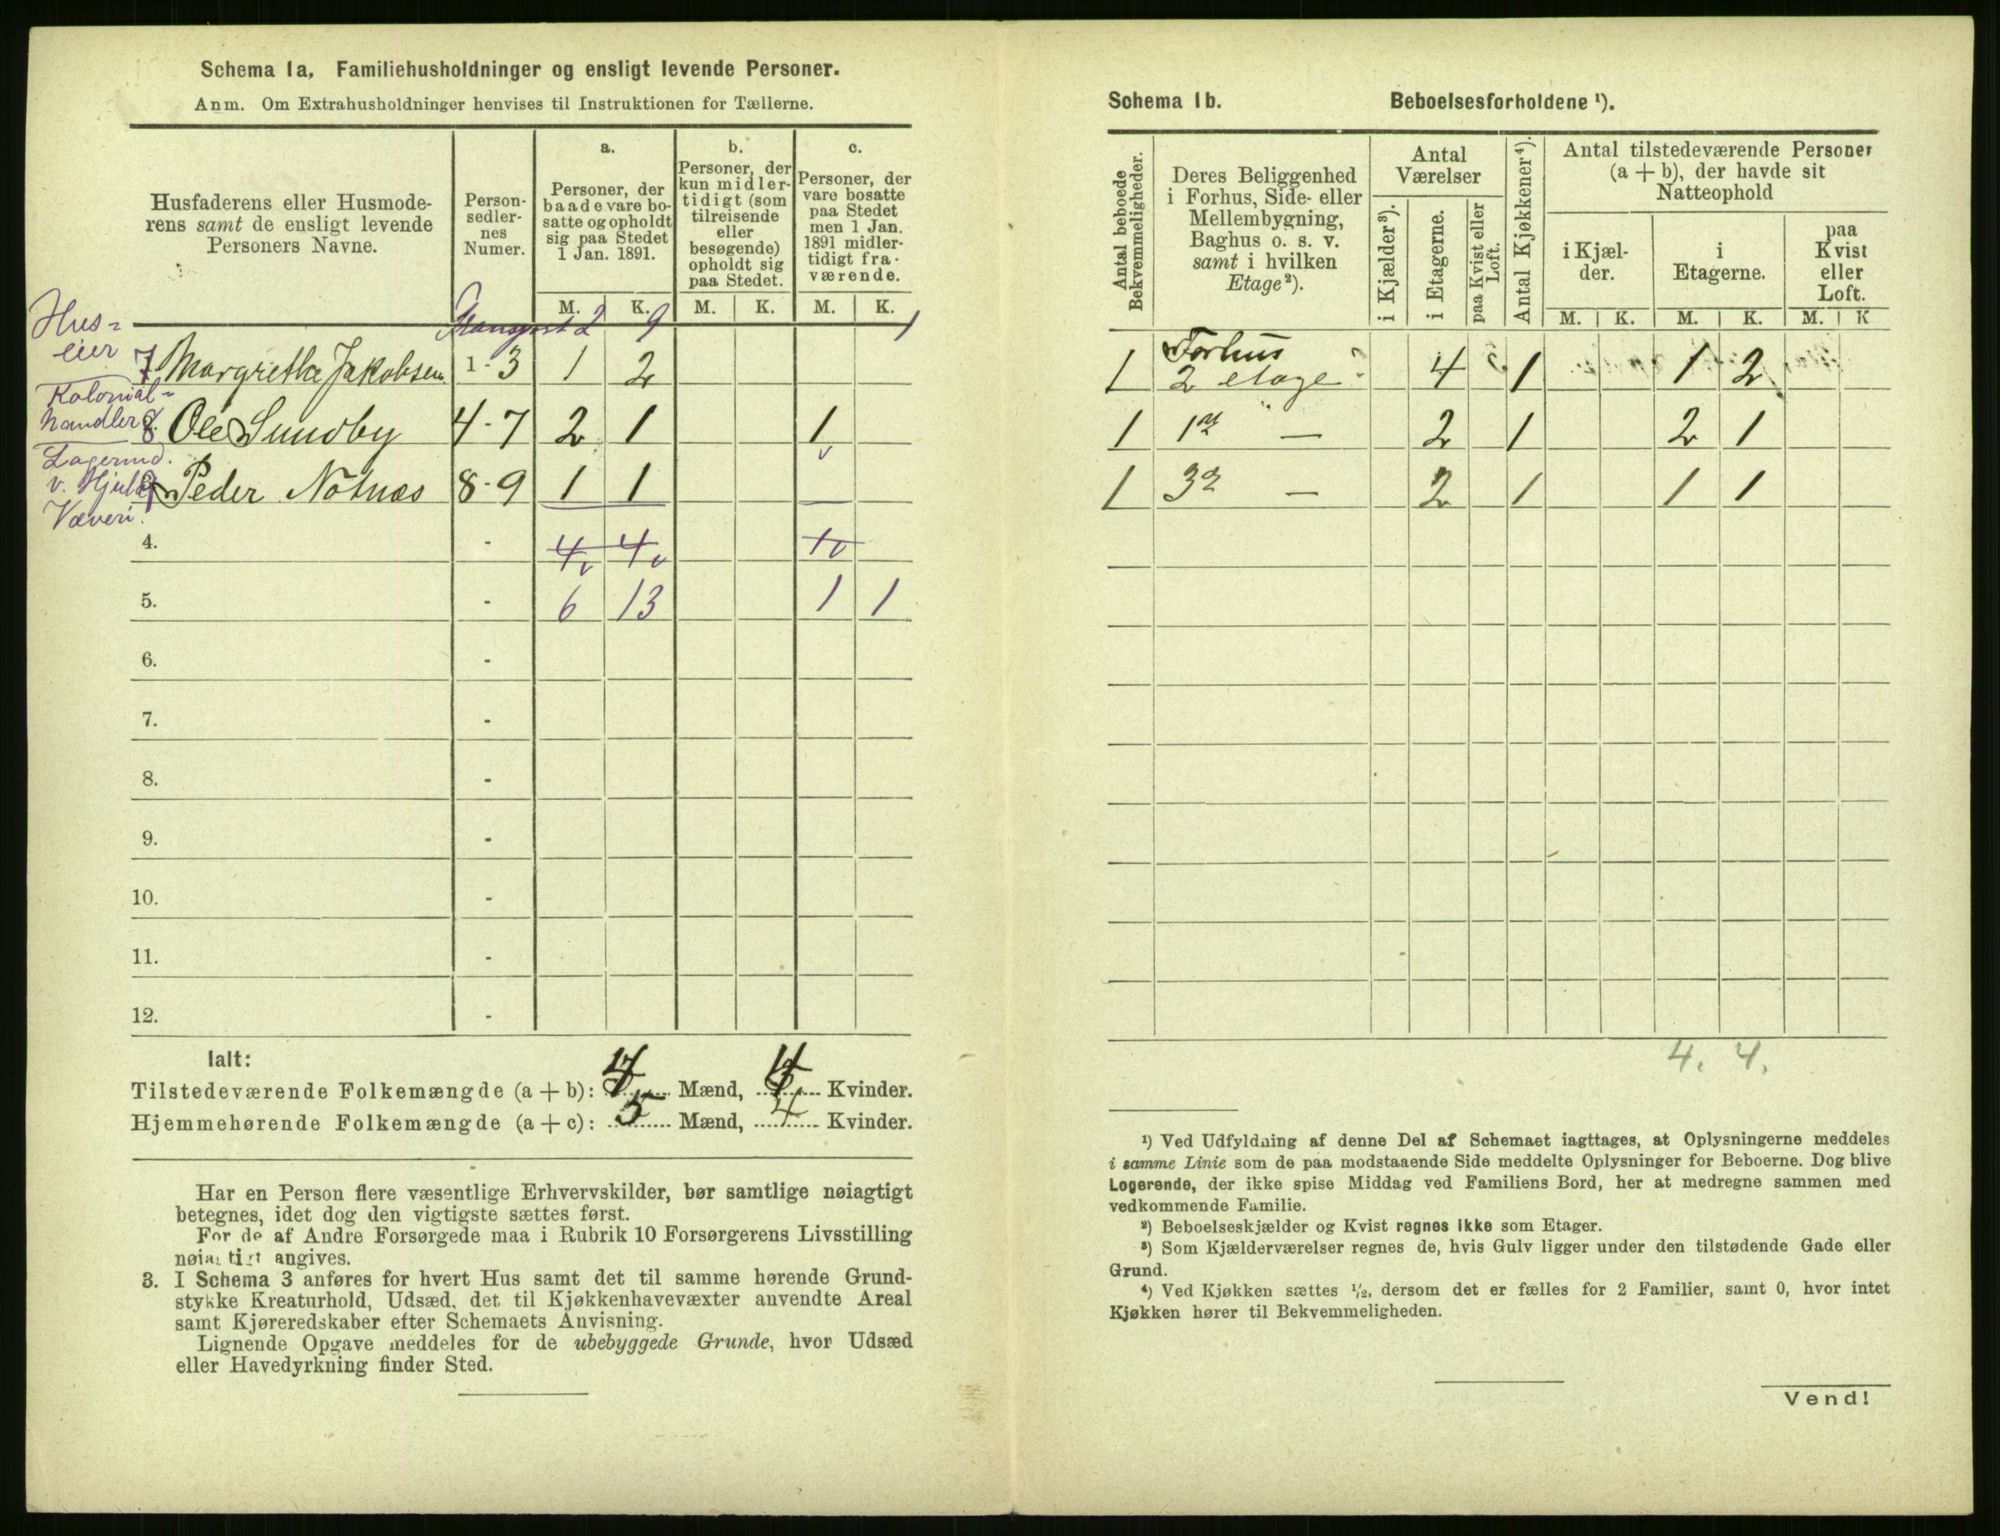 Schema 1a, Familiehusholdninger og ensligt levende Personer.
Anm. Om Extrahusholdninger henvises til Instruktionen for Tællerne.
Husfaderens eller Husmode-
rens samt de ensligt levende
Personers Navne.
Person-
sedler-
nes
Numer.
a.
Personer, der
baade vare bo-
satte og opholdt
sig paa Stedet
1 Jan. 1891.
b.
Personer, der
kun midler-
tidigt (som
tilreisende
eller
besøgende)
opholdt sig
paa Stedet.
c.
Personer, der
vare bosatte
paa Stedet
men 1 Jan.
1891 midler-
tidigt fra-
værende.
M. K. M. K. M. K.
2 9 1
Hus-
eier
7 Margrethe Jakobsen 1-3 1 2
Kolonial-
handler
8. Ole Sundby 4-7 2 1 1
Lagermd.
v. Hjula
Væveri.
9 Peder Notnæs 8-9 1 1
4. - 4 4 1
5. - 6 13 1 1
6. -
7. -
8. -
9. -
10. -
11. -
12. -
Ialt:
Tilstedeværende Folkemængde (a + b): 4 Mænd, 4 Kvinder.
Hjemmehørende Folkemængde (a + c): 5 Mænd, 4 Kvinder.
Har en Person flere væsentlige Erhvervskilder, bør samtlige nøiagtigt
betegnes, idet dog den vigtigste sættes først.
For de af Andre Forsørgede maa i Rubrik 10 Forsørgerens Livsstilling
nøiagtigt angives.
3. I Schema 3 anføres for hvert Hus samt det til samme hørende Grund-
stykke Kreaturhold, Udsæd, det til Kjøkkenhavevæxter anvendte Areal
samt Kjøreredskaber efter Schemaets Anvisning.
Lignende Opgave meddeles for de ubebyggede Grunde, hvor Udsæd
eller Havedyrkning finder Sted.
Schema 1b. Beboelsesforholdene ¹).
Antal beboede
Bekvemmeligheder.
Deres Beliggenhed
i Forhus, Side- eller
Mellembygning,
Baghus o. s. v.
samt i hvilken
Etage²).
Antal
Værelser
i Kjælder³).
i Etagerne.
paa Kvist eller
Loft.
Antal Kjøkkener⁴).
Antal tilstedeværende Personer
(a + b), der havde sit
Natteophold
i Kjæl-
der.
i
Etagerne.
paa
Kvist
eller
Loft.
M. K. M. K. M. K
1 Forhus
2 etage 4 1 1 2
1 1ste — 2 1 2 1
1 3die — 2 1 1 1
4. 4.
¹) Ved Udfyldning af denne Del af Schemaet iagttages, at Oplysningerne meddeles
i samme Linie som de paa modstaaende Side meddelte Oplysninger for Beboerne. Dog blive
Logerende, der ikke spise Middag ved Familiens Bord, her at medregne sammen med
vedkommende Familie.
²) Beboelseskjælder og Kvist regnes ikke som Etager.
³) Som Kjælderværelser regnes de, hvis Gulv ligger under den tilstødende Gade eller
Grund.
⁴) Ved Kjøkken sættes ½, dersom det er fælles for 2 Familier, samt 0, hvor intet
Kjøkken hører til Bekvemmeligheden.
Vend!